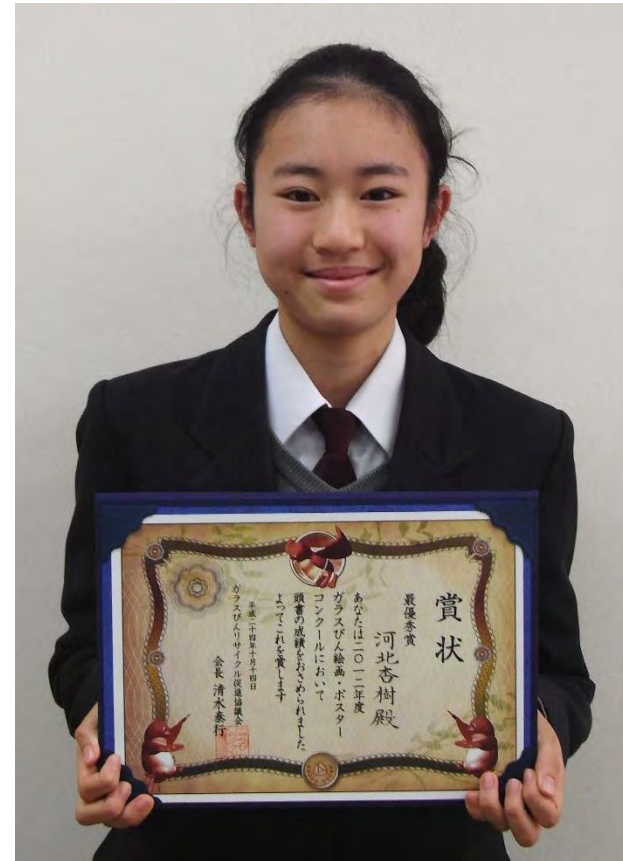 賞状
最優秀賞
河北杏樹殿
あなたは二〇一二年度
ガラスびん絵画・ポスター
コンクールにおいて
頭書の成績をおさめられました
よってこれを賞します
平成二十四年十月十四日
ガラスびんリサイクル促進協議会
会長 清水泰行